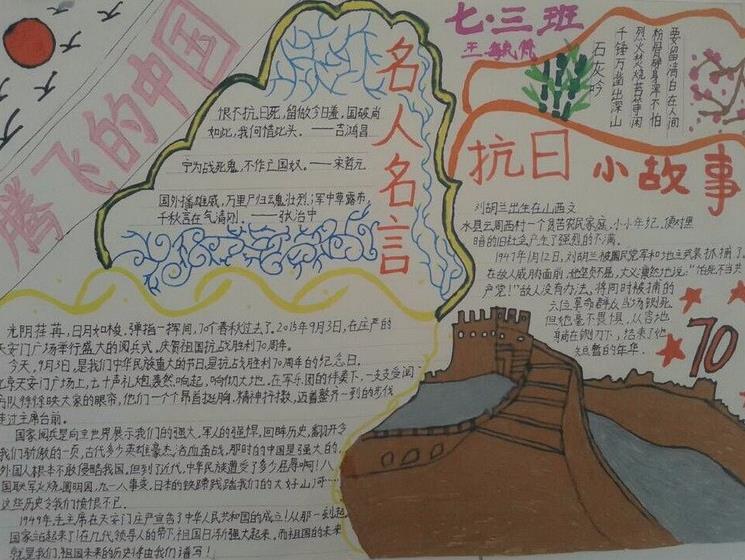 腾飞的中国
名人名言
恨不抗日死,留做今日羞,国破尚
如此,我何惜此头。——吉鸿昌
宁为战死鬼,不作亡国奴。——宋哲元
国外播雄威,万里尸归魂壮烈;军中尊露布,
千秋言在气清刚。——张治中
七·三班
石灰吟
千锤万凿出深山
烈火焚烧若等闲
粉骨碎身浑不怕
要留清白在人间
抗日小故事
刘胡兰出生在山西文
水县云周西村一个贫苦农民家庭,小小年纪,便对黑
暗的旧社会产生了强烈的不满。
1947年1月12日,刘胡兰被国民党军和地主武装抓捕了。
在敌人威胁面前,她坚贞不屈,大义凛然地说:"怕死不当共
产党!"敌人没有办法,将同时被捕的
六位革命群众当场铡死。
但她毫不畏惧,从容地
躺在铡刀下,结束了他
短暂的年华。
70
光阴荏苒,日月如梭,弹指一挥间,70个春秋过去了。2015年9月3日,在庄严的
天安门广场举行盛大的阅兵式,庆贺祖国抗战胜利70周年。
今天,9月3日,是我们中华民族重大的节日,是抗战胜利70周年的纪念日。
北京天安门广场上,七十声礼炮轰然响起,响彻大地,在军乐团的伴奏下,一支支受阅
部队徐徐映入大家的眼帘,他们一个个昂首挺胸,精神抖擞,迈着整齐划一的步伐
走过主席台前。
国家阅兵是向全世界展示我们的强大,军人的强悍,回眸历史,翻开令
我们骄傲的一页,古代多少英雄豪杰浴血奋战,那时的中国是强大的,
外国人根本不敢侵略我国,但到了近代,中华民族遭受了多少屈辱啊!八
国联军火烧圆明园,九一八事变,日本的铁蹄践踏我们的大好山河……
这些历史令我们愤恨不已。
1949年,毛主席在天安门庄严宣告了中华人民共和国的成立!从那一刻起
国家站起来了!在几代领导人的带下,祖国日渐强大起来,而祖国的未来
就是我们,祖国未来的历史将由我们谱写!